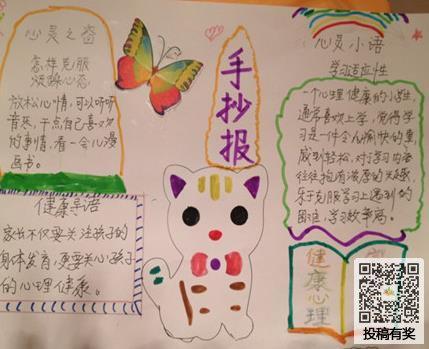 心灵之窗
怎样克服
浮躁心态
放松心情,可以听听
音乐,干点自己喜欢
的事情,看一会儿漫
画书。
手抄报
心灵小语
学习适应性
一个心理健康的小学生,
通常喜欢上学,觉得学
习是一件令人愉快的事,
感到轻松,对学习内容
往往抱有浓厚的兴趣,
乐于克服学习上遇到的
困难,学习效率高。
健康导语
家长不仅要关注孩子的
身体发育,更要关心孩子
的心理健康。
健康心理
投稿有奖